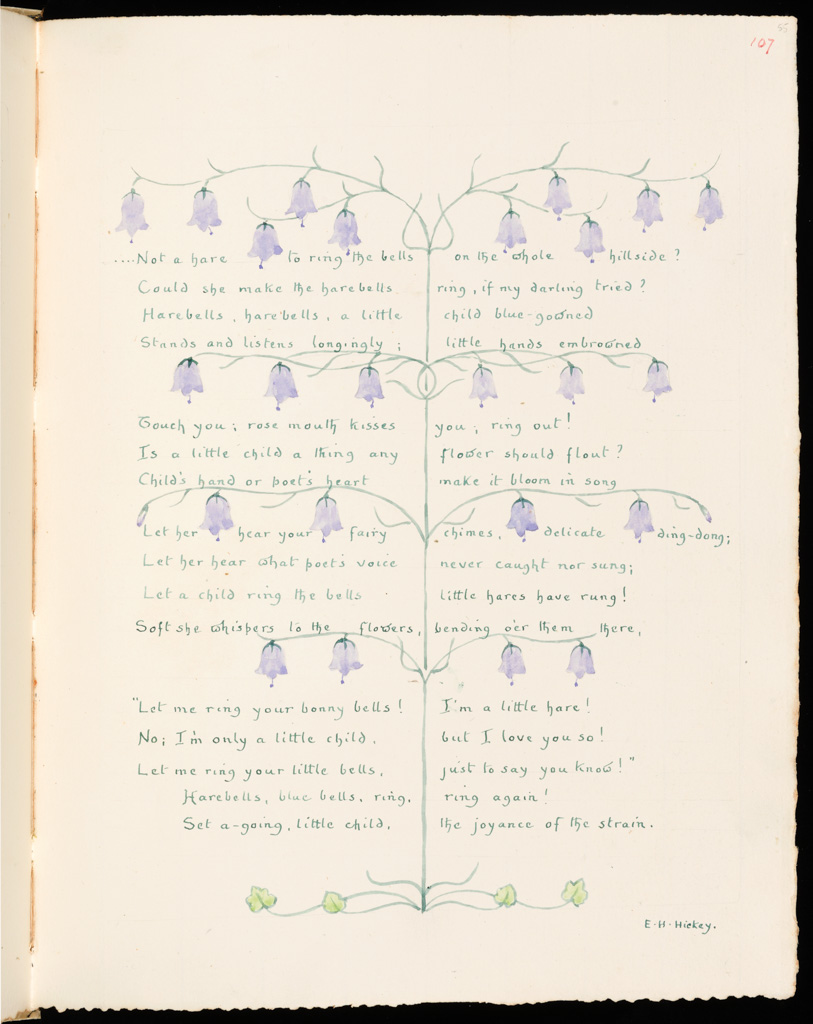 107
....Not a hare to ring the bells on the whole hillside?
Could she make the harebells ring, if my darling tried?
Harebells, harebells, a little child blue-gowned
Stands and listens longingly; little hands embrowned
Touch you; rose mouth kisses you; ring out!
Is a little child a thing any flower should flout?
Child's hand or poet's heart make it bloom in song
Let her hear your fairy chimes, delicate ding-dong;
Let her hear what poet's voice never caught nor sung;
Let a child ring the bells little hares have rung!
Soft she whispers to the flowers, bending o'er them there,
"Let me ring your bonny bells! I'm a little hare!
No; I'm only a little child, but I love you so!
Let me ring your little bells, just to say you know!"
Harebells, blue bells, ring, ring again!
Set a-going, little child, the joyance of the strain.
E·H·Hickey.